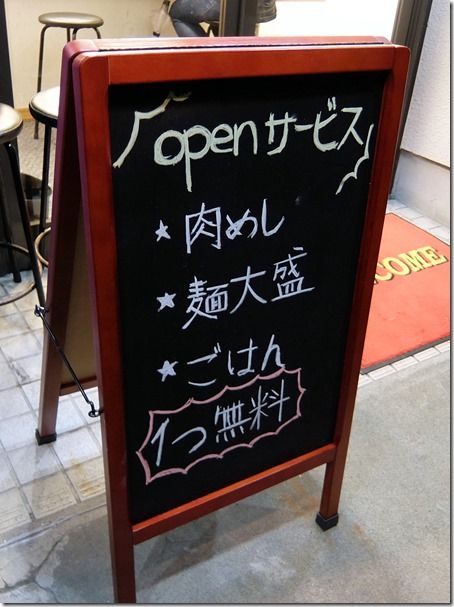 openサービス
★肉めし
★麺大盛
★ごはん
1つ無料
COME